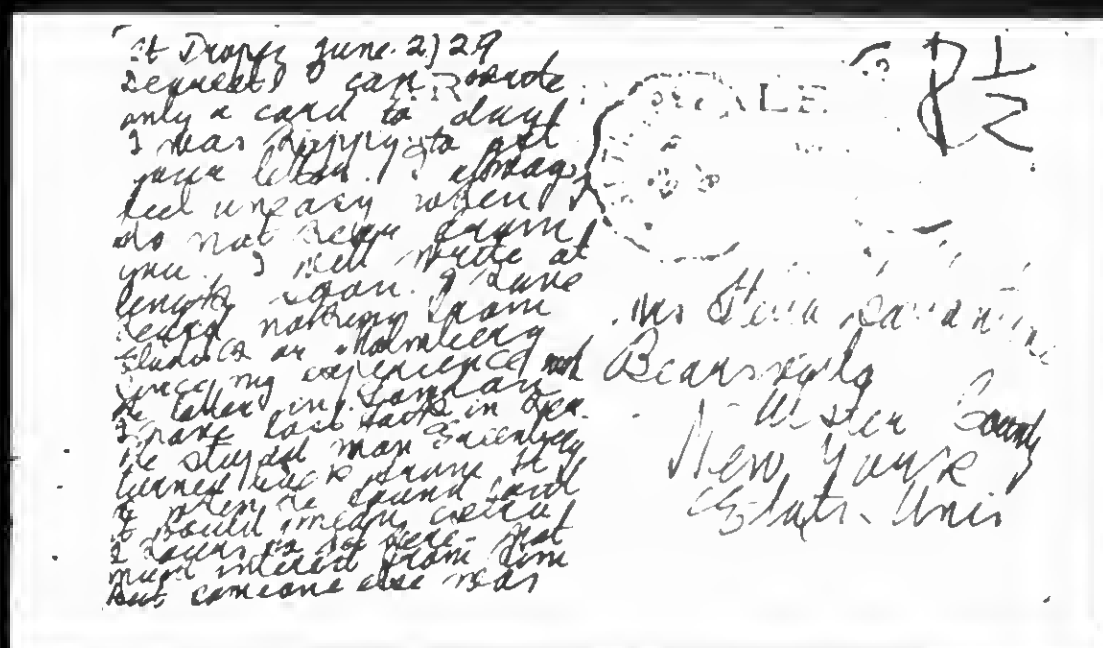 St Tropez June 2/29
Dearest! I can wrote
only a card to day!
I was happy to get
your letter. I always
feel uneasy when I
do not hear from
you. I will write at
length soon. I have
heard nothing from
or Malmberg
since my experience with
the latter in London
I have lost faith in
the stupid man
turned back from
when he found out
it would mean extra
2 hours to go here. Not
much interest from him
But someone else was
8 1/2
Mrs Stella
Bearsville
Ulster County
New York
Etats-Unis